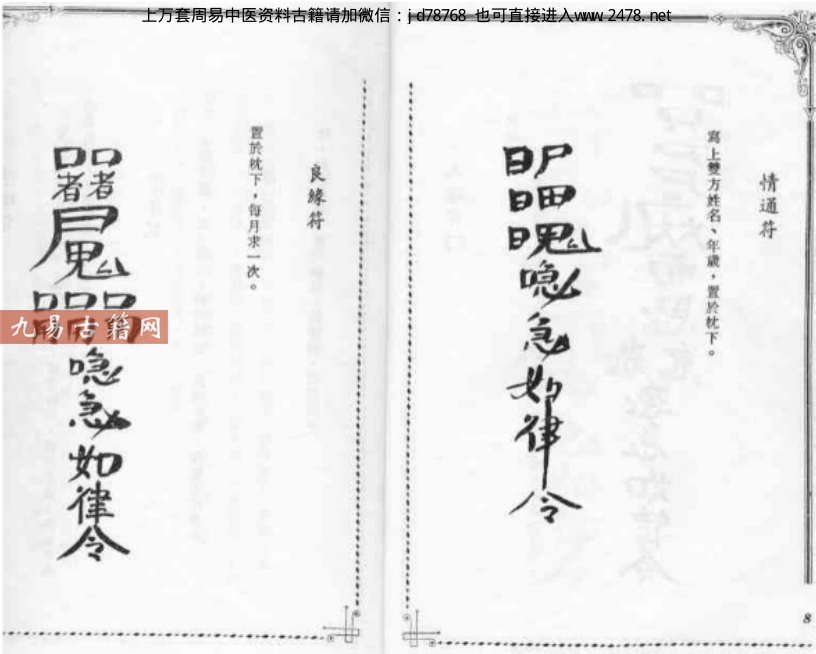 上万套周易中医资料古籍请加微信：jd78768 也可直接进入www.2478.net
情通符
寫上雙方姓名、年歲，置於枕下。
唸急如律令
8
良緣符
置於枕下，每月求一次。
唸急如律令
九易古籍网